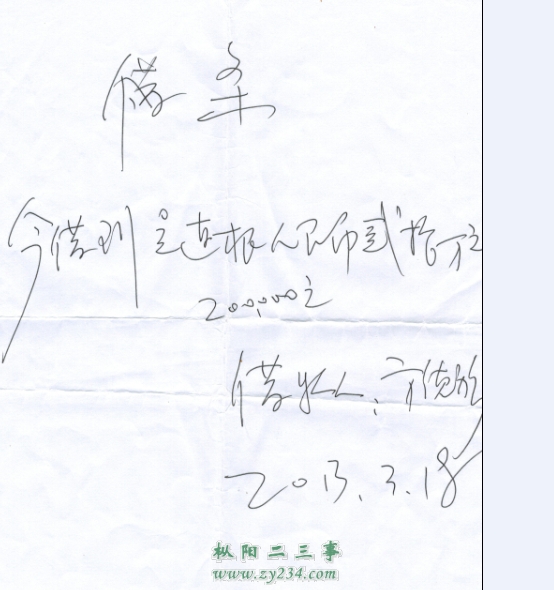 借条
今借到 连根人民币贰拾万元
200,000元
借款人:方
2013.3.18
枞阳二三事
www.zy234.com